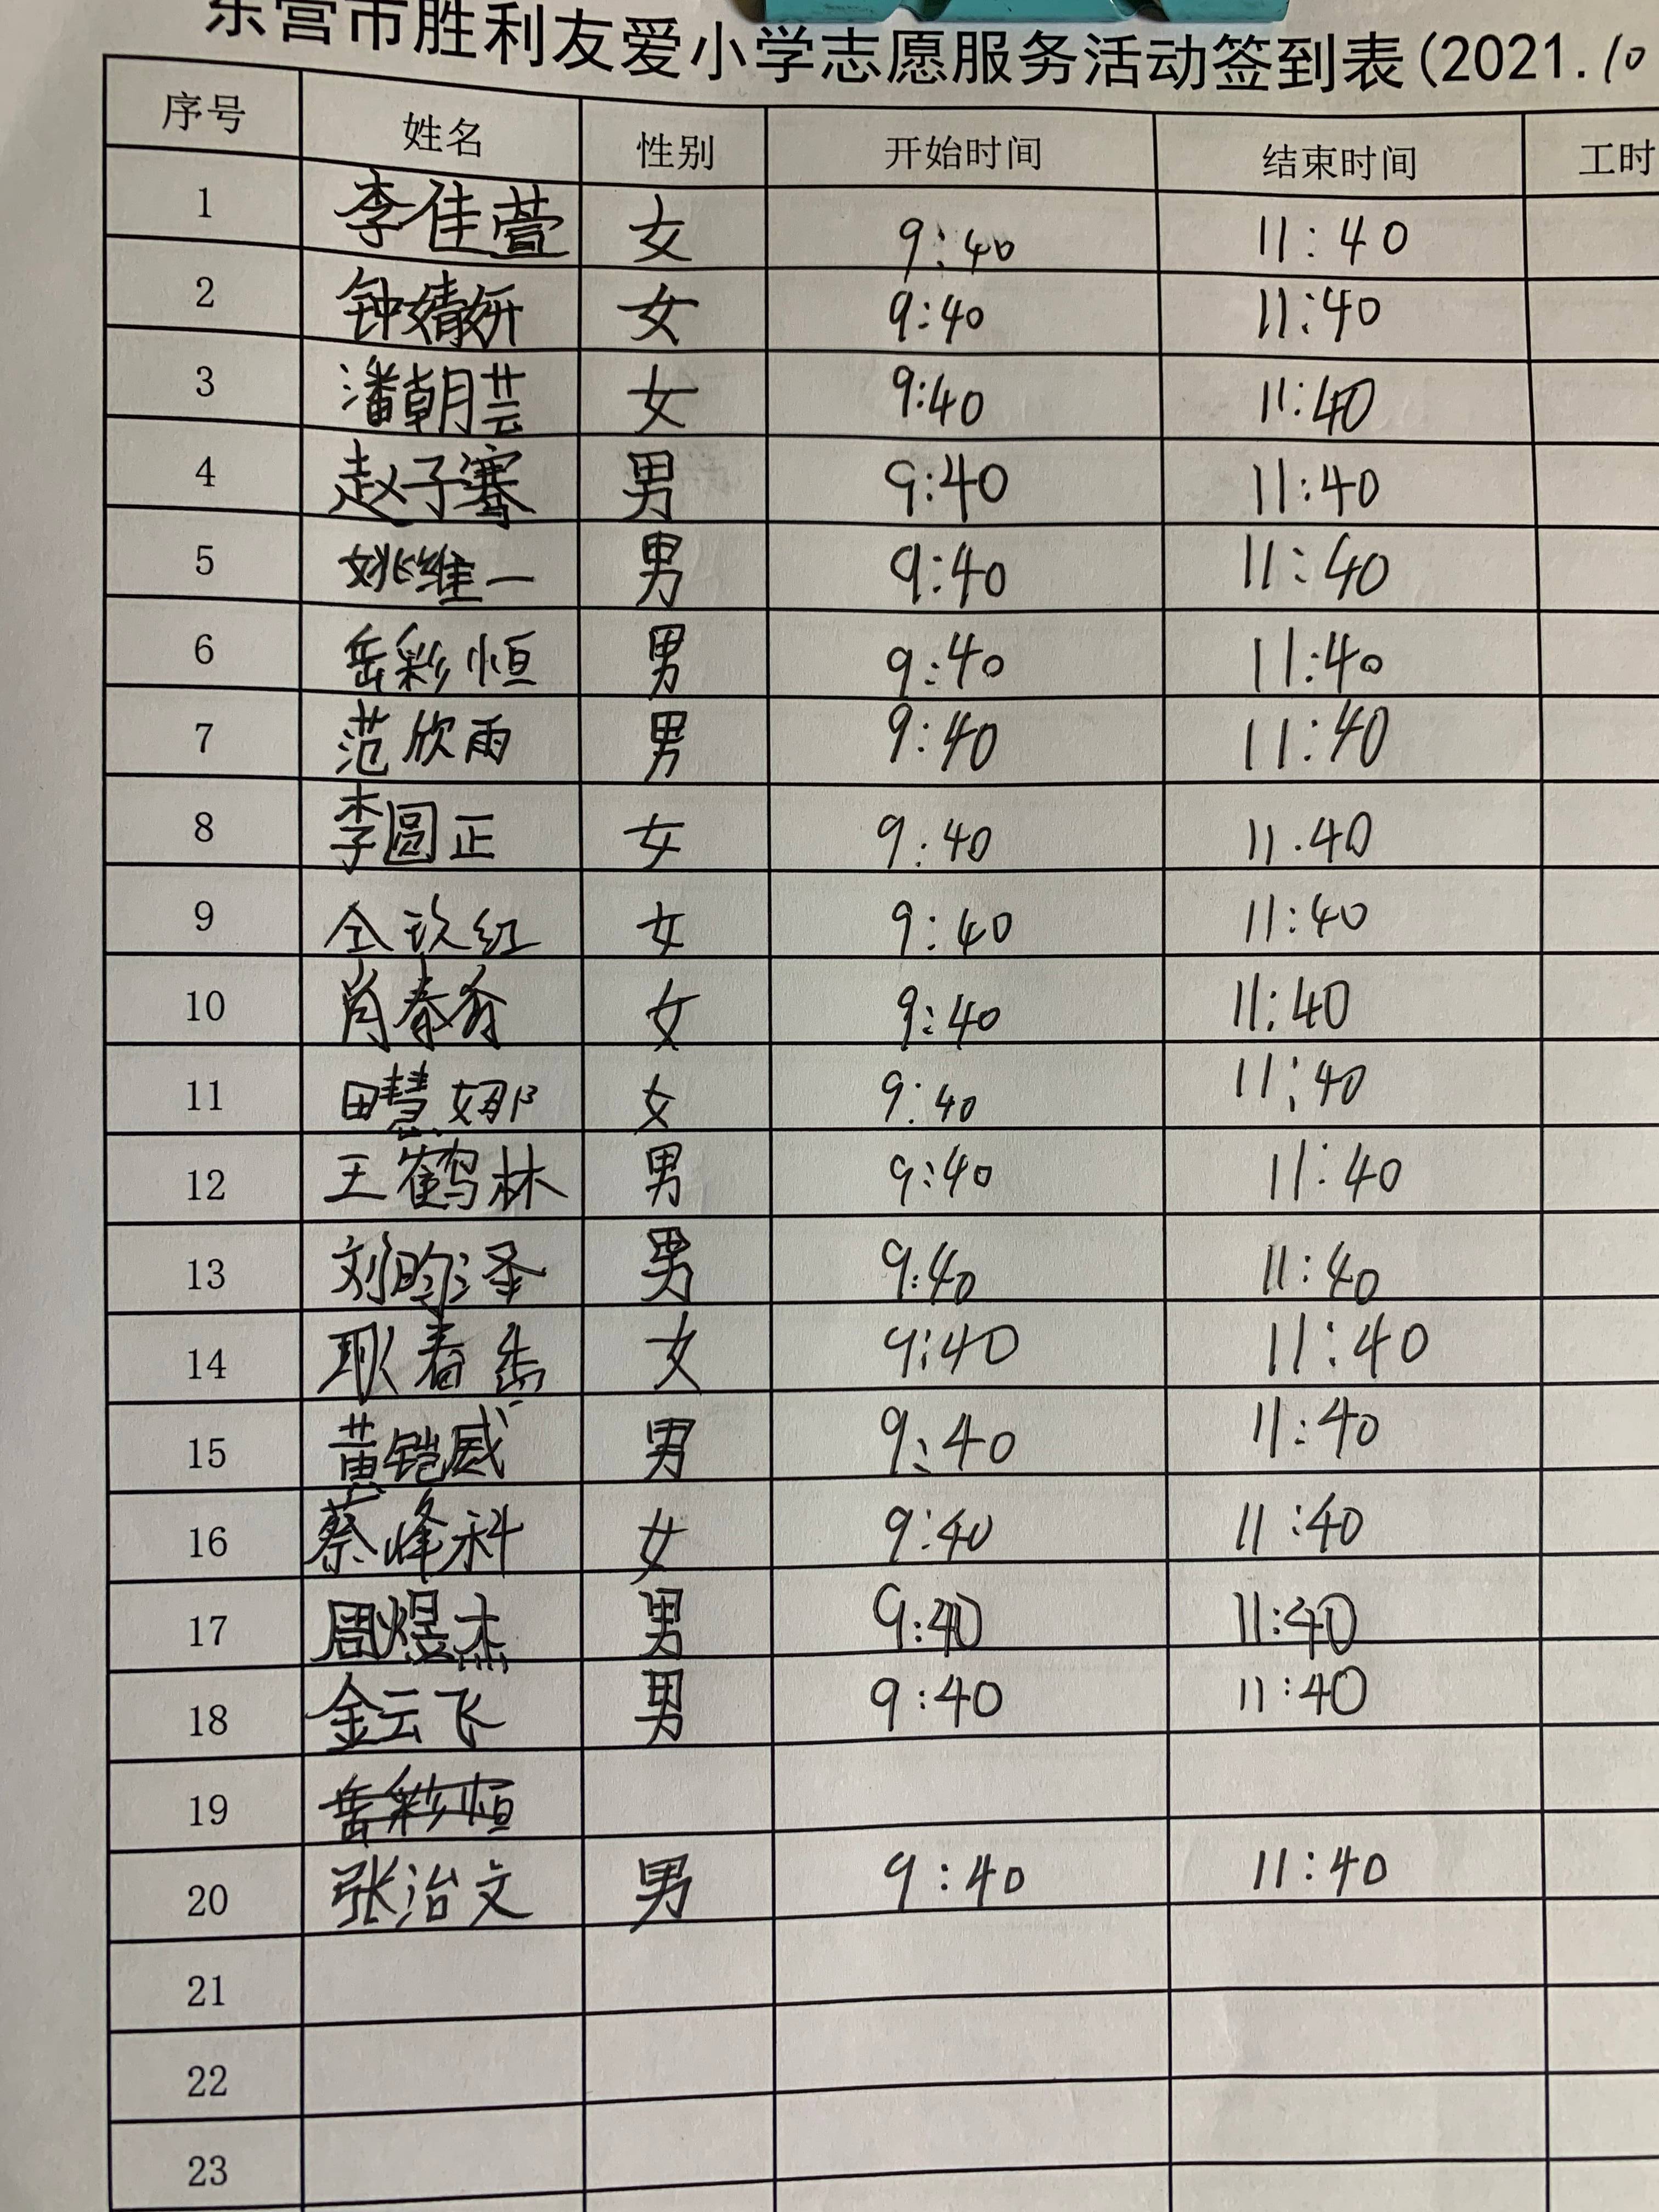 东营市胜利友爱小学志愿服务活动签到表(2021.10
序号 姓名 性别 开始时间 结束时间 工时
1 李佳萱 女 9:40 11:40
2 钟婧妍 女 9:40 11:40
3 潘朝芸 女 9:40 11:40
4 赵子骞 男 9:40 11:40
5 姚维一 男 9:40 11:40
6 岳彩恒 男 9:40 11:40
7 范欣雨 男 9:40 11:40
8 李圆正 女 9:40 11.40
9 仝玖红 女 9:40 11:40
10 肖春 女 9:40 11:40
11 田慧娜 女 9:40 11:40
12 王鹤林 男 9:40 11:40
13 刘昀泽 男 9:40 11:40
14 耿春 女 9:40 11:40
15 黄铠威 男 9:40 11:40
16 蔡峰科 女 9:40 11:40
17 周煜杰 男 9:40 11:40
18 金云飞 男 9:40 11:40
19 岳彩恒
20 张治文 男 9:40 11:40
21
22
23